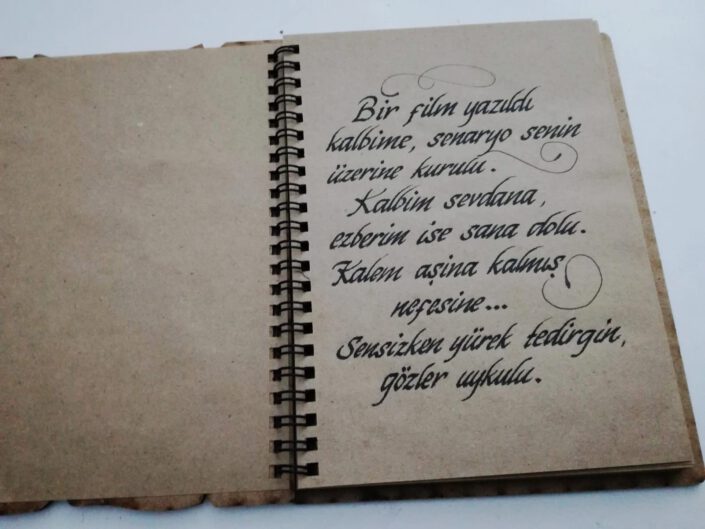 Bir film yazıldı
kalbime, senaryo senin
üzerine kurulu.
Kalbim sevdana,
ezberim ise sana dolu.
Kalem aşina kalmış
nefesine...
Sensizken yürek tedirgin,
gözler uykulu.